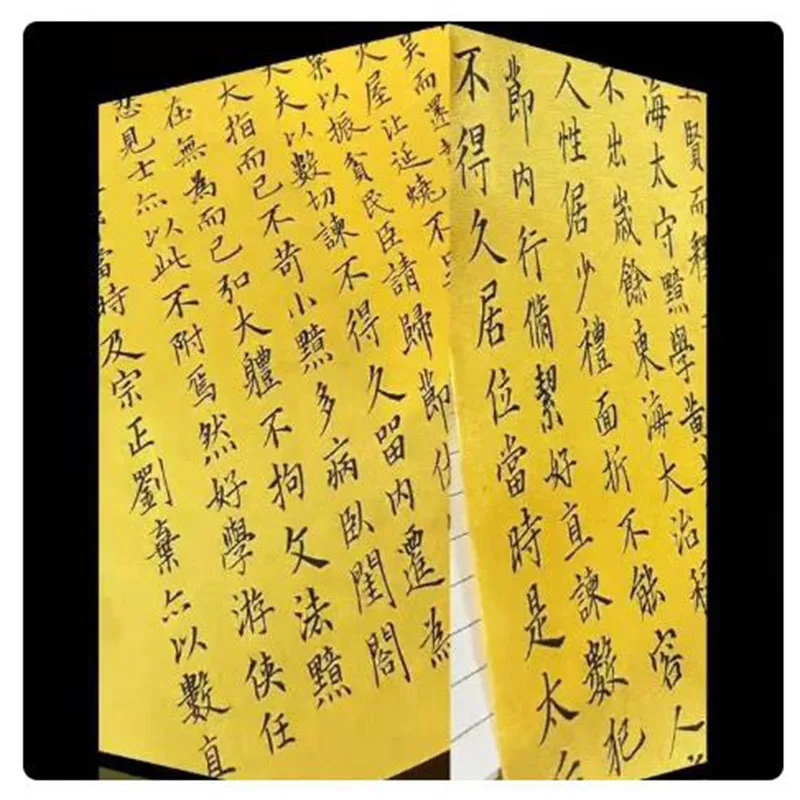 賢而釋
海太守黯學黃
不出歲餘東海大治稱
人性倨少禮面折不能容人
節內行脩絜好直諫數犯
不得久居位當時是太
吳而還
火屋让延燒不
粟以振貧民臣請歸節伏
大夫以數切諫不得久留內遷為
大指而已不苛小黯多病臥閨閤
在無為而已弘大體不拘文法黯
忍見士亦以此不附焉然好學游俠任
當時及宗正劉棄亦以數直